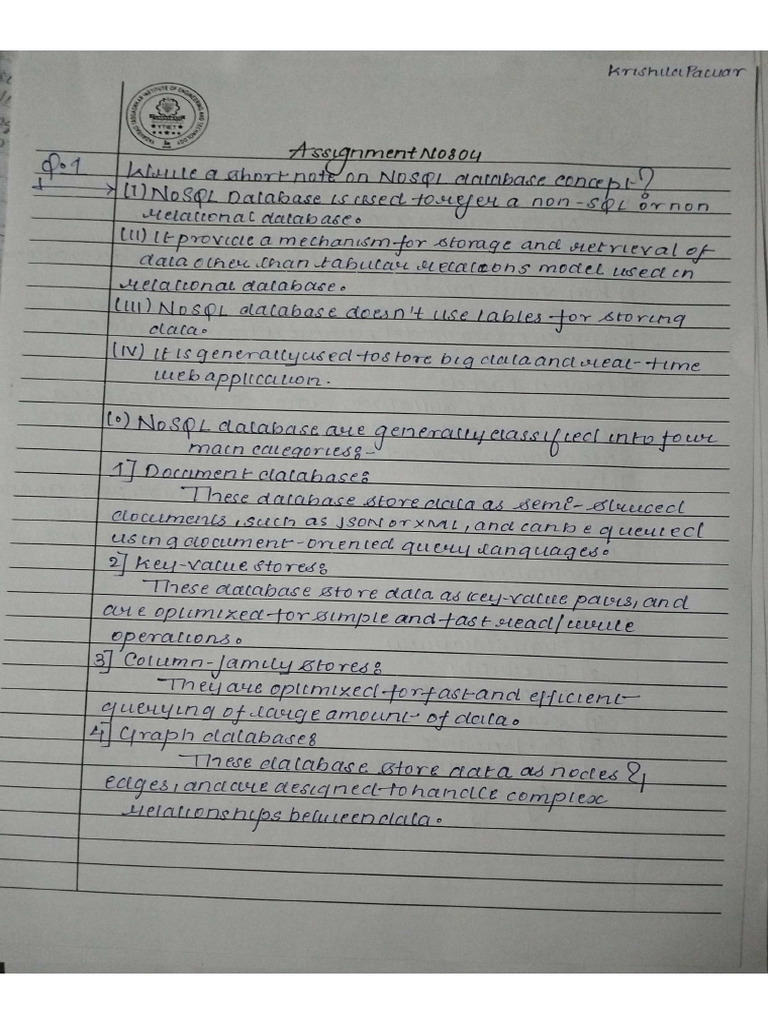 Krishila Pawar
YASHWANTRAO INSTITUTE OF ENGINEERING AND TECHNOLOGY
Assignment No 04
Q.1 Write a short note on NoSQL database concept?
→ (I) NoSQL Database is used to refer a non-SQL or non
relational database.
(II) It provide a mechanism for storage and retrieval of
data other than tabular relations model used in
relational database.
(III) NoSQL database doesn't use tables for storing
data.
(IV) It is generally used to store big data and real-time
web application.
(o) NoSQL database are generally classified into four
main categories:-
1] Document database:
These database store data as semi-struced
documents, such as JSON or XML, and can be queried
using document-oriented query languages.
2] Key-value stores:
These database store data as key-value pairs, and
are optimized for simple and fast read/write
operations.
3] Column-family stores:
They are optimized for fast and efficient
querying of large amount of data.
4] Graph database:
These database store data as nodes &
edges, and are designed to handle complex
relationships between data.